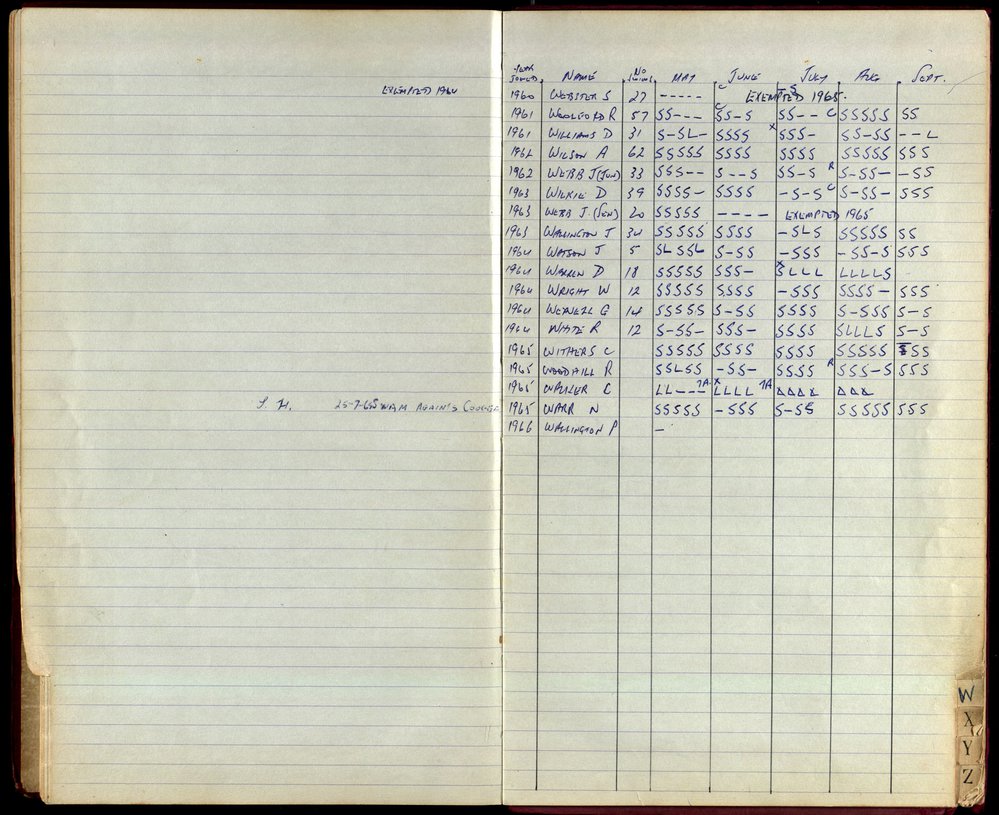 EXEMPTED 1964
S. H. 25-7-65 SWAM AGAINS COOGEE
YEAR JOINED NAME NO SWIMS MAY JUNE JULY AUG SEPT.
1960 WEBSTER S 27 ----- EXEMPTED 1965.
1961 WOOLFORD R 57 SS--- SS-S SS-- C SSSSS SS
1961 WILLIAMS D 31 S-SL- SSSS X SSS- SS-SS --L
1962 WILSON A 62 SSSSS SSSS SSSS SSSSS SSS
1962 WEBB J (JUN) 33 SSS-- S--S SS-S R S-SS- -SS
1963 WILKIE D 39 SSSS- SSSS -S-S C S-SS- SSS
1963 WEBB J. (SEN) 20 SSSSS ---- EXEMPTED 1965
1963 WALLINGTON J 34 SSSSS SSSS -SLS SSSSS SS
1964 WATSON J 5 SLSSL S-SS -SSS -SS-S SSS
1964 WARREN D 18 SSSSS SSS- X SLLL LLLLS
1964 WRIGHT W 12 SSSSS SSSS -SSS SSSS- SSS
1964 G 14 SSSSS S-SS SSSS S-SSS S-S
1964 WHITE R 12 S-SS- SSS- SSSS SLLLS S-S
1965 WITHERS C SSSSS SSSS SSSS SSSSS SSS
1965 WOODHILL R SSLSS -SS- SSSS R SSS-S SSS
1965 C LL--- TA X LLLL TA ΔΔΔΔ ΔΔΔ
1965 WARR N SSSSS -SSS S-SS SSSSS SSS
1966 WALLINGTON P -
W
X
Y
Z